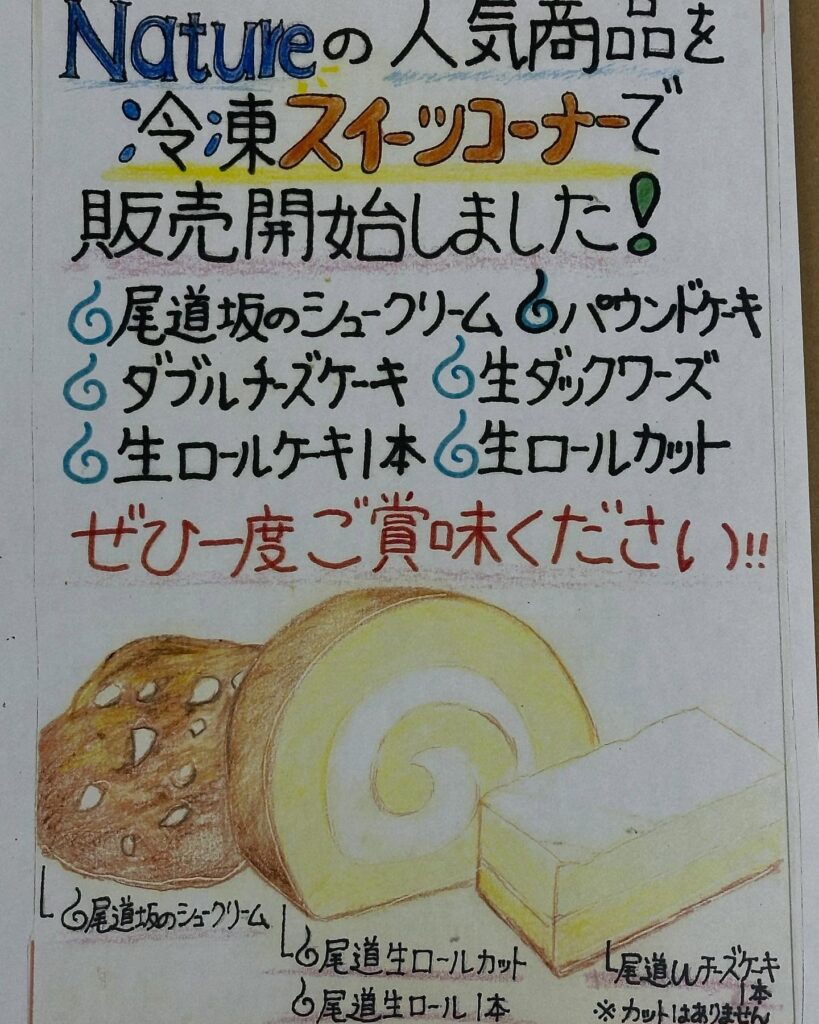 Natureの人気商品を
冷凍スイーツコーナーで
販売開始しました!
尾道坂のシュークリーム パウンドケーキ
ダブルチーズケーキ 生ダックワーズ
生ロールケーキ1本 生ロールカット
ぜひ一度ご賞味ください!!
尾道坂のシュークリーム
尾道生ロールカット
尾道生ロール1本
尾道Wチーズケーキ
1本
※カットはありません